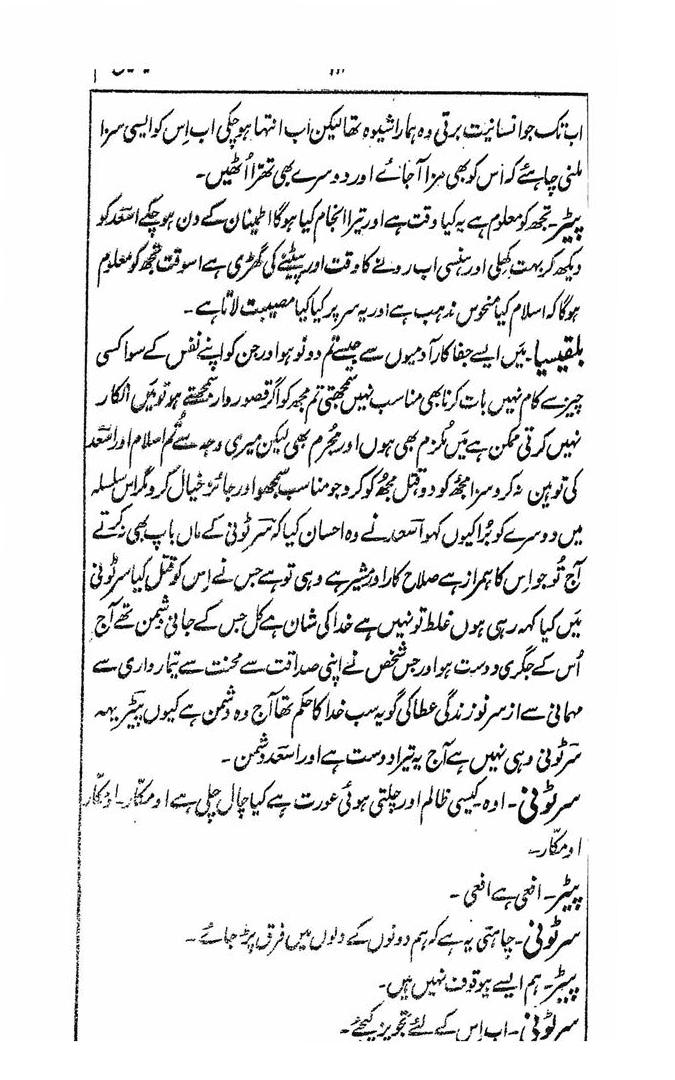 اب تک جو انسانیت برتی وہ ہمارا شیوہ تھا لیکن اب انتہا ہو چکی اب اِس کو ایسی سزا
ملنی چاہئے کہ اُس کو بھی مزا آ جائے اور دوسرے بھی تھرّا اُٹھیں۔
پیٹر۔ تجھ کو معلوم ہے یہ کیا وقت ہے اور تیرا انجام کیا ہوگا اطمینان کے دن ہو چکے اسعد کو
دیکھ کر بہت کھِلی اور ہنسی اب رونے کا وقت اور پیٹنے کی گھڑی ہے اسوقت تجھ کو معلوم
ہوگا کہ اسلام کیا منحوس مذہب ہے اور یہ سر پر کیا کیا مصیبت لاتا ہے۔
بلقیسیا۔ مَیں ایسے جفا کار آدمیوں سے جیسے تم دونو ہو اور جن کو اپنے نفس کے سوا کسی
چیز سے کام نہیں بات کرنا بھی مناسب نہیں سمجھتی تم مجھ کو اگر قصوروار سمجھتے ہو تو مَیں انکار
نہیں کرتی ممکن ہے مَیں مُلزم بھی ہوں اور مجرم بھی لیکن میری وجہ سے تُم اسلام اور اسعد
کی توہین نہ کرو سزا مجھ کو دو قتل مجھ کو کرو جو مناسب سمجھو اور جائز خیال کرو مگر اس سلسلہ
میں دوسرے کو بُرا کیوں کہو اسعد نے وہ احسان کیا کہ سرٹونی کے ماں باپ بھی نہ کرتے
آج تُو جو اِس کا ہمراز ہے صلاح کار اور مشیر ہے وہی تو ہے جس نے اِس کو قتل کیا سرٹونی
مَیں کیا کہہ رہی ہوں غلط تو نہیں ہے خدا کی شان ہے کل جس کے جانی دشمن تھے آج
اُس کے جگری دوست ہو اور جس شخص نے اپنی صداقت سے محنت سے تیمارداری سے
مہمانی سے از سر نو زندگی عطا کی گو یہ سب خدا کا حکم تھا آج وہ دشمن ہے کیوں پیٹر یہہ
سرٹونی وہی نہیں ہے آج یہ تیرا دوست ہے اور اسعد دشمن۔
سرٹونی۔ اوہ کیسی ظالم اور چلتی ہوئی عورت ہے کیا چال چلی ہے او مکّار۔ او مکّار
او مکّار۔
پیٹر۔ افعی ہے افعی۔
سرٹونی۔ چاہتی یہ ہے کہ ہم دونوں کے دلوں میں فرق پڑ جائے۔
پیٹر۔ ہم ایسے بیوقوف نہیں ہیں۔
سرٹونی۔ اب اِس کے لئے تجویز کیجئے۔